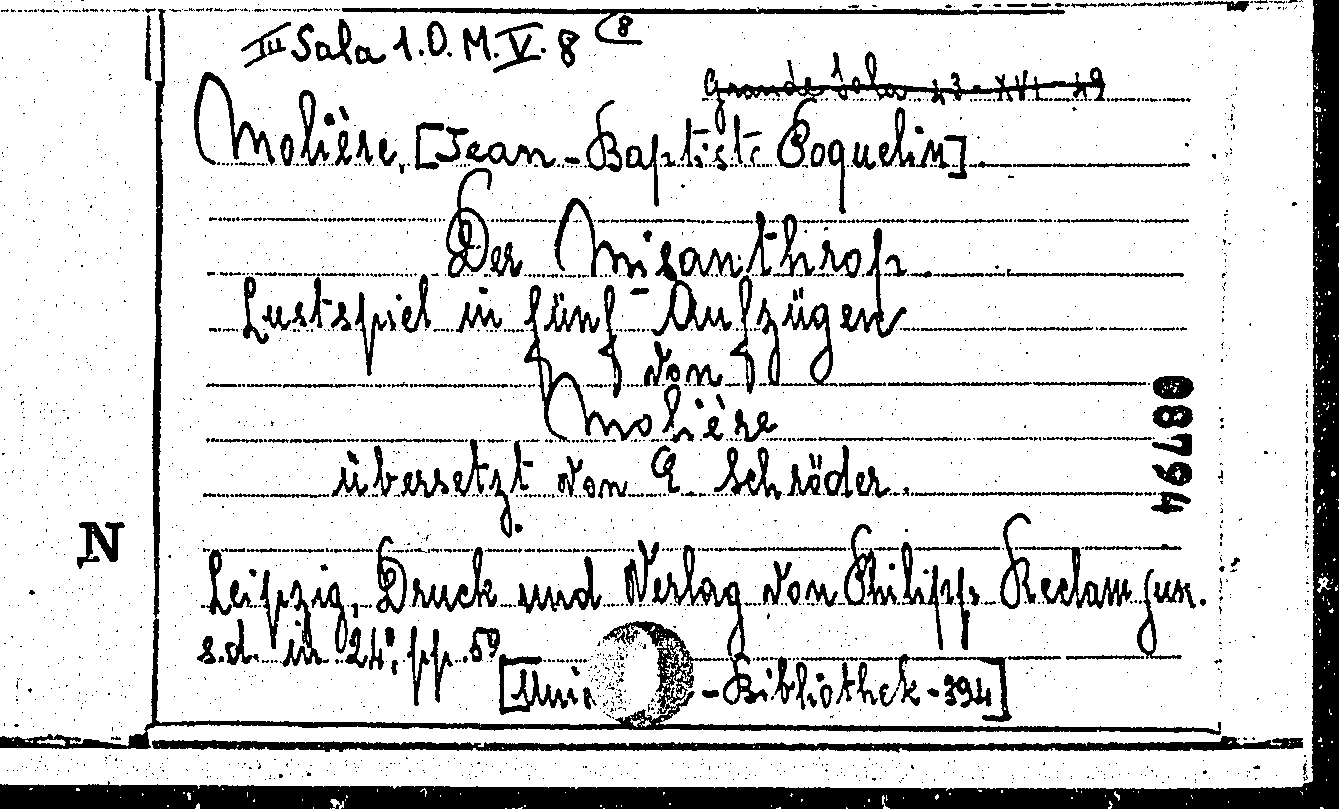 III Sala 1.O.M.V.8 (8
Grande Sala 43-XVI-49
Molière, [Jean-Baptiste Poquelin].
Der Misanthrop.
Lustspiel in fünf Aufzügen
von
Molière
übersetzt von E. Schröder.
087994
N
Leipzig, Druck und Verlag von Philipp Reclam jun.
s.d. in 24°, pp. 59
[Uni -Bibliothek-394]